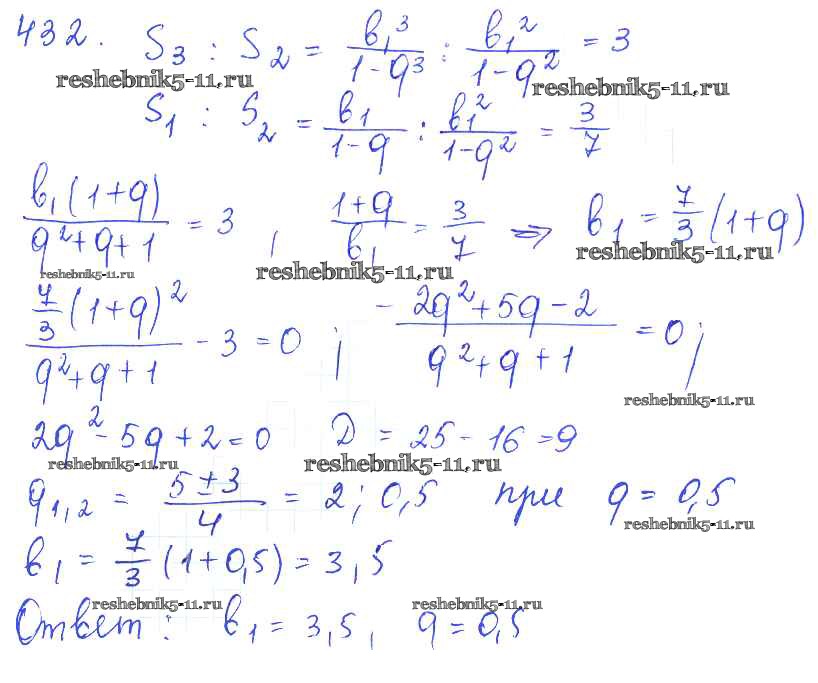 432. S₃ : S₂ = b₁³/(1-q³) : b₁²/(1-q²) = 3
reshebnik5-11.ru reshebnik5-11.ru
S₁ : S₂ = b₁/(1-q) : b₁²/(1-q²) = 3/7
b₁(1+q)/(q²+q+1) = 3 , (1+q)/b₁ = 3/7 => b₁ = 7/3 (1+q)
reshebnik5-11.ru reshebnik5-11.ru reshebnik5-11.ru
7/3 (1+q)²/(q²+q+1) - 3 = 0 ; - (2q²+5q-2)/(q²+q+1) = 0 ;
reshebnik5-11.ru
2q² - 5q + 2 = 0 D = 25 - 16 = 9
reshebnik5-11.ru reshebnik5-11.ru
q₁,₂ = (5±3)/4 = 2 ; 0,5 при q = 0,5
reshebnik5-11.ru
b₁ = 7/3 (1+0,5) = 3,5
reshebnik5-11.ru reshebnik5-11.ru
Ответ : b₁ = 3,5 , q = 0,5